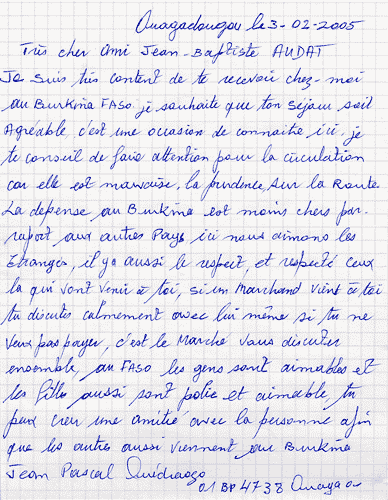 Ouagadougou le 3-02-2005
Très cher ami Jean-Baptiste AUDAT
Je suis très content de te recevoir chez-moi
au Burkina FASO. je souhaite que ton séjour soit
Agréable, c'est une occasion de connaitre ici. je
te conseil de faire attention pour la circulation
car elle est mauvaise, la prudence sur la Route
La depense au Burkina est moins chers par-
raport aux autres Pays ici nous aimons les
Etrangers, il y a aussi le respect, et respecté ceux
la qui vont venir à toi, si un Marchand vient à toi
tu discutes calmement avec lui même si tu ne
veux pas payer, c'est le Marché vous discuter
ensemble, au FASO les gens sont aimables et
les filles aussi sont polie et aimable, tu
peux creer une amitié avec la personne afin
que les autres aussi viennent au Burkina
Jean Pascal Ouédraogo
01 BP 4738 Ouaga 01